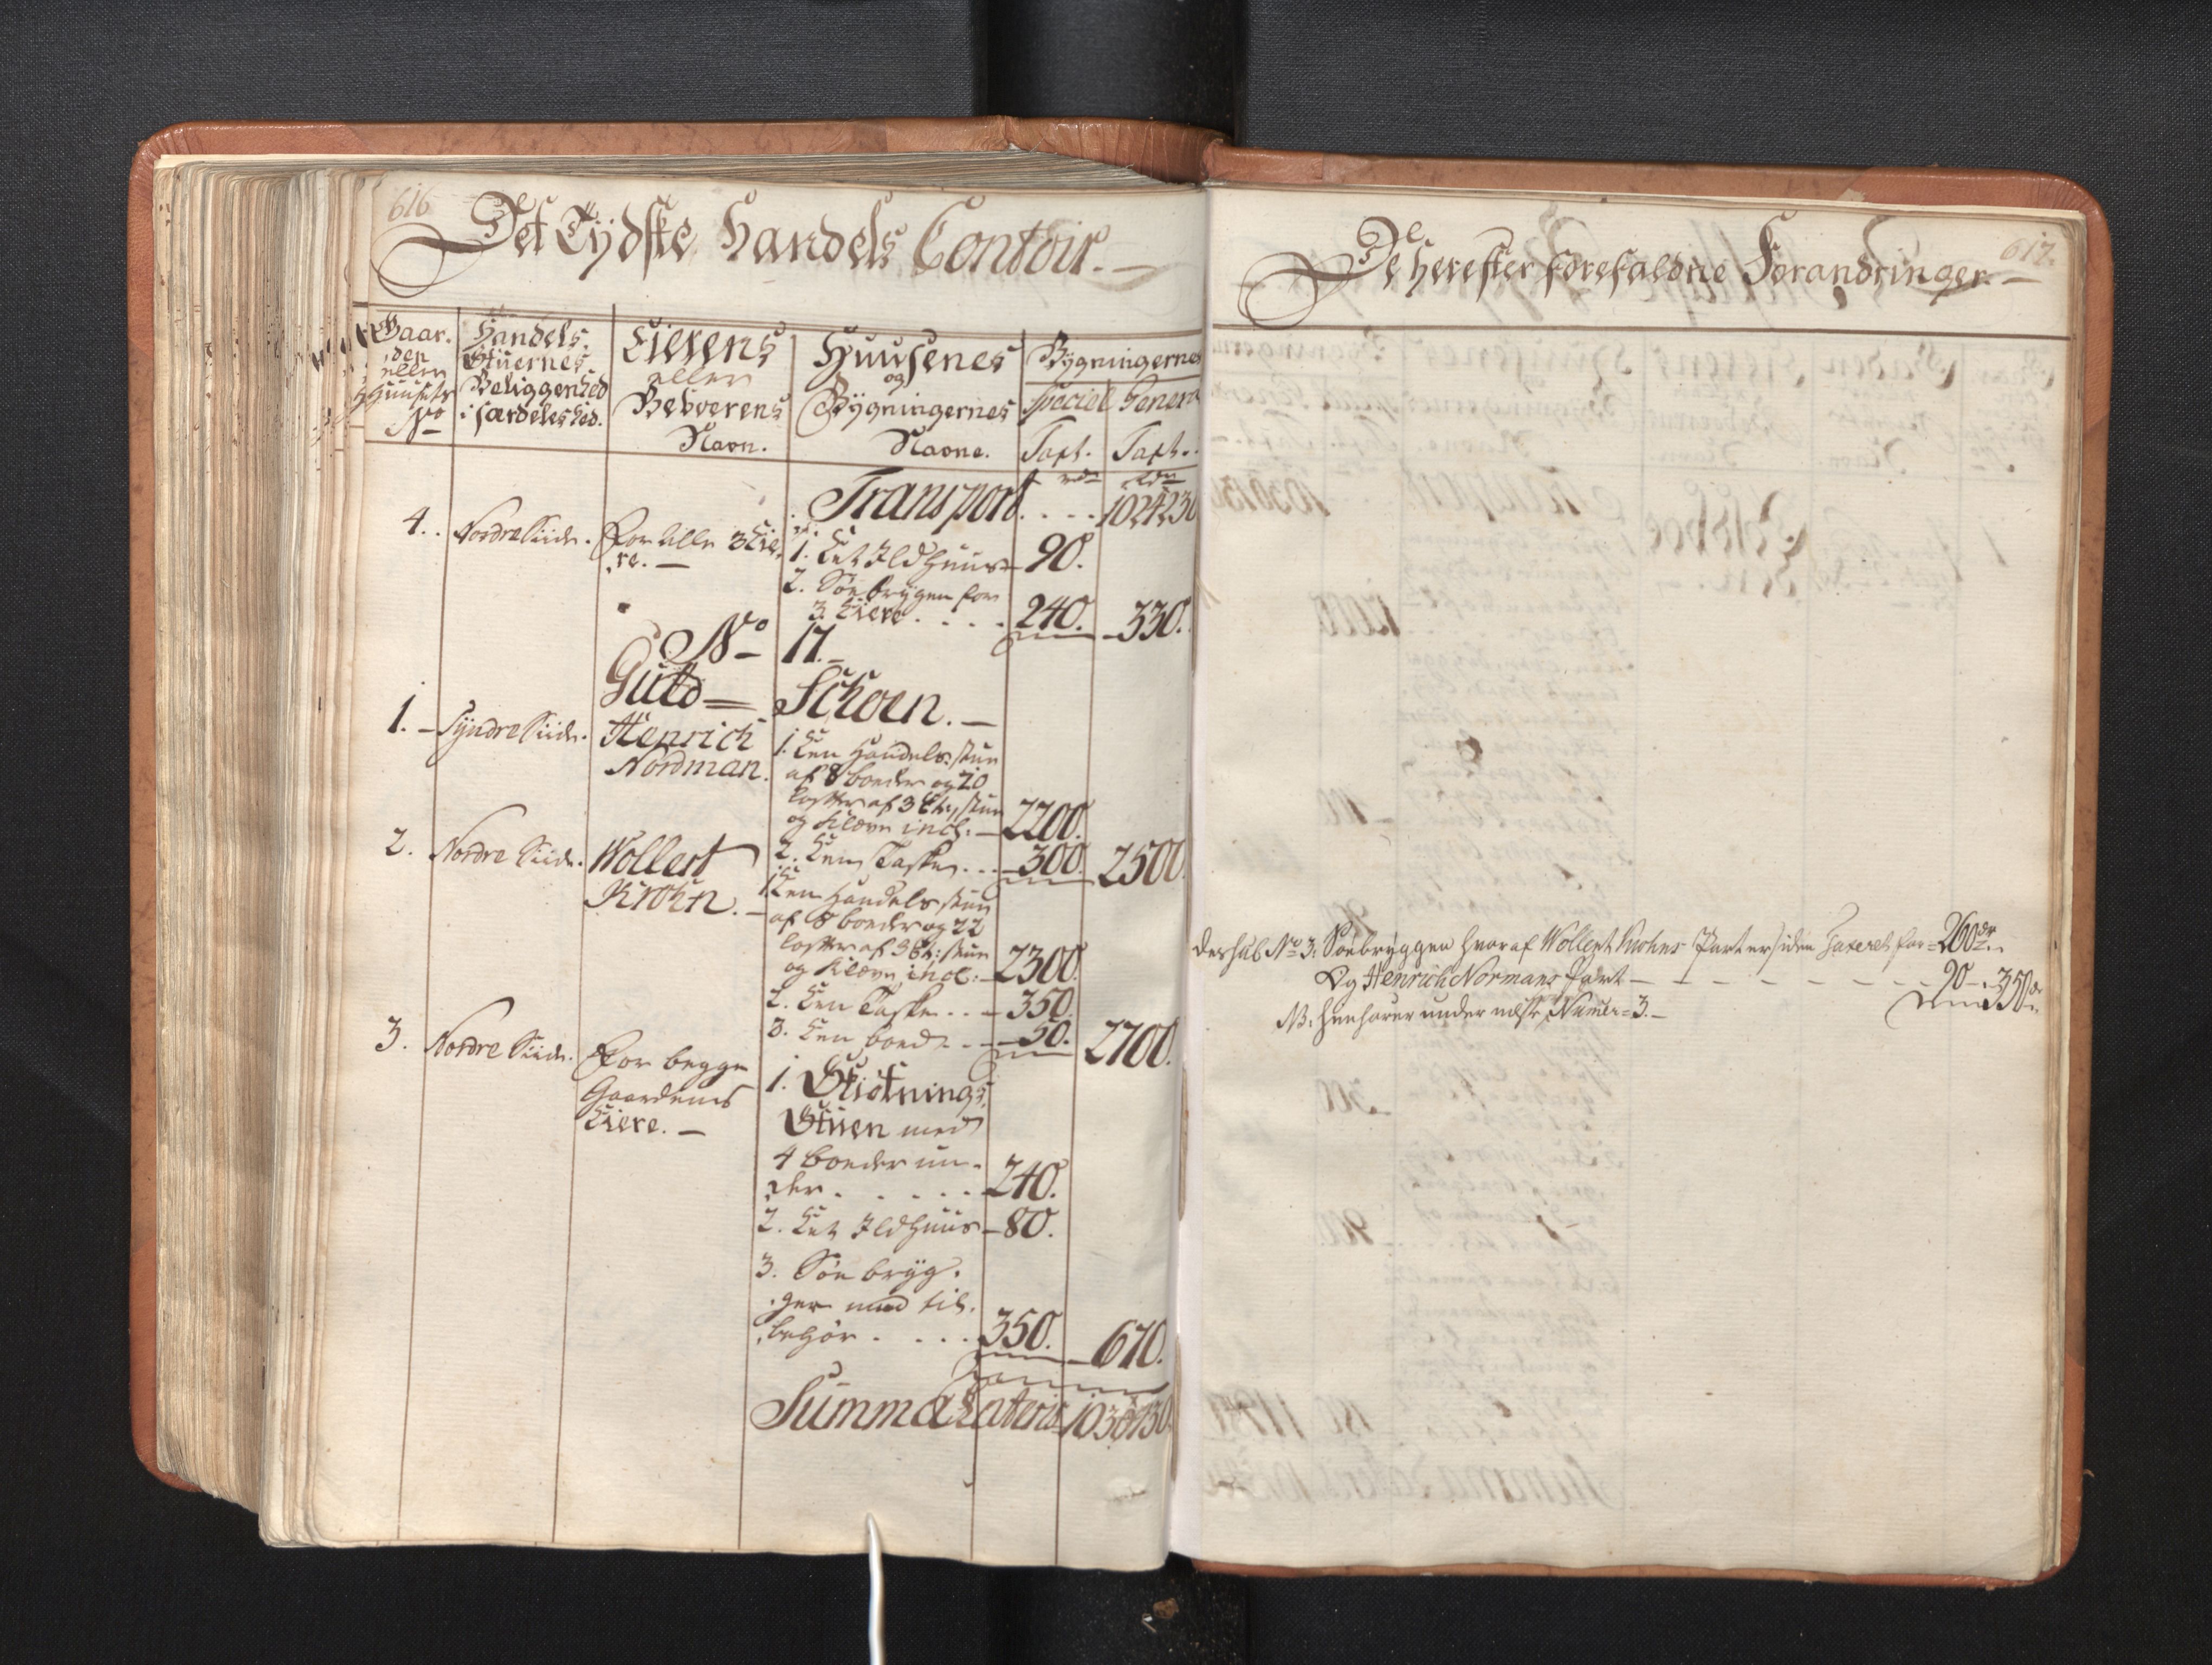 616
Det Tydske Handels Contoir. —
Gaar-
den
eller
Huusets
No
Handels-
Stuernes
Beliggenhed
i særdeleshed.
Eierens
eller
Beboerens
Navn.
Huusenes
og
Bygningernes
Navne.
Bygningernes
Speciel
Taxt.
rdr
General
Taxt.
rdr
Transport. . . . 102230
4. . Nordre Siide. For alle 3 Eie-
re. —
1. Eet Ildhuus — 90.
2. Söe bryggen for
3 Eiere. . . . 240. — 330.
No 17. —
Guld = Schoen. —
1. — Syndre Siide. Henrich
Nordman.
1. Een Handels-stue
af 8 boeder og 20
lofter af 3 Et: stuen
og Kleven incl: — 2200.
2. Een Taske. . . — 300. 2500.
2. Nordre Siide. Wollert
Krohn. —
1. Een Handels stue
af 8 boeder og 22
lofter af 3 Et: stuen
og Kleven incl: — 2300.
2. Een Taske. . . — 350.
3. Een boed. . . — 50. 2700.
3. Nordre Siide. For begge
Gaardens
Eiere. —
1. Skiötnings
Stuen med
4 boeder un-
der. . . . . . — 240.
2. Eet Ildhuus — 80.
3. Söe bryg-
ger med til-
behör. . . . 350. — 670.
Summa Lateris 103
617.
De herefter forefaldne Forandringer. —
No 3: Söebryggen hvoraf Wollert Krohns Part er siden Taxeret for = 260 rdr
Og Henrich Normans Part — — — — — — — 90 — 350 rdr
NB: henhører under næste Numer = 3. —